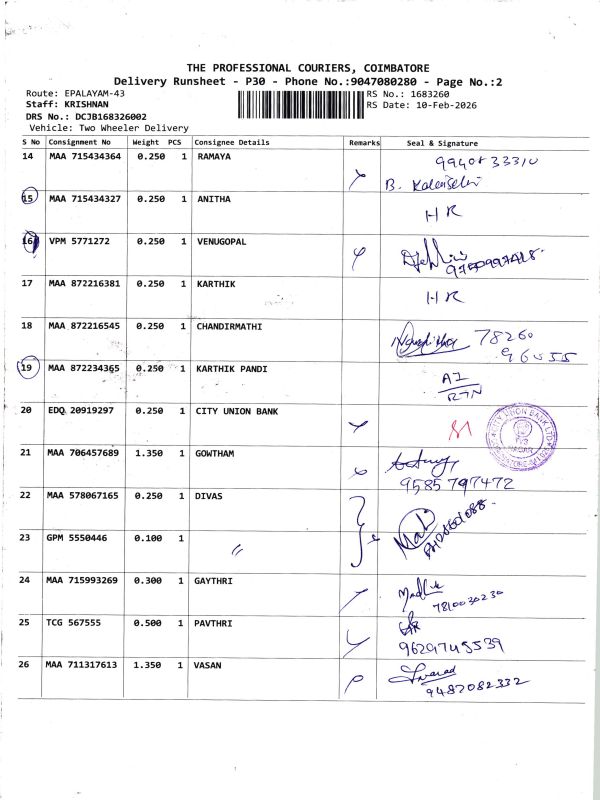 THE PROFESSIONAL COURIERS, COIMBATORE
Delivery Runsheet - P30 - Phone No.:9047080280 - Page No.:2
Route: EPALAYAM-43
RS No.: 1683260
Staff: KRISHNAN
RS Date: 10-Feb-2026
DRS No.: DCJB168326002
Vehicle: Two Wheeler Delivery
S No Consignment No Weight PCS Consignee Details Remarks Seal & Signature
14 MAA 715434364 0.250 1 RAMAYA
15 MAA 715434327 0.250 1 ANITHA HR
16 VPM 5771272 0.250 1 VENUGOPAL
17 MAA 872216381 0.250 1 KARTHIK HR
18 MAA 872216545 0.250 1 CHANDIRMATHI 78260
96055
19 MAA 872234365 0.250 1 KARTHIK PANDI
RTN
20 EDQ 20919297 0.250 1 CITY UNION BANK
21 MAA 706457689 1.350 1 GOWTHAM
9585797472
22 MAA 578067165 0.250 1 DIVAS
23 GPM 5550446 0.100 1 〃
24 MAA 715993269 0.300 1 GAYTHRI
7810030230
25 TCG 567555 0.500 1 PAVTHRI
9629745539
26 MAA 711317613 1.350 1 VASAN
9487082332